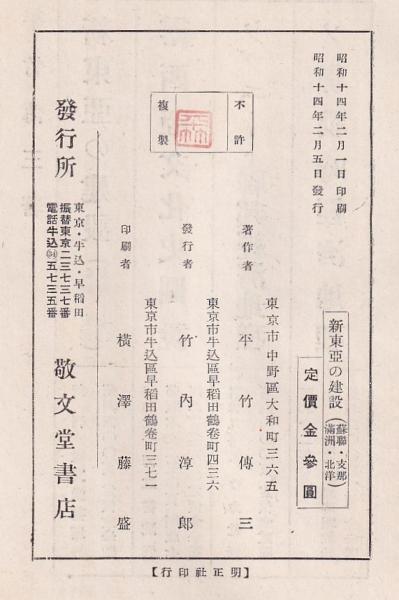 昭和十四年二月一日印刷
昭和十四年二月五日發行
新東亞の建設(蘇聯・支那
滿洲・北洋)
定價金參圓
不許
複製
東京市中野區大和町三六五
著作者 平竹傳三
東京市牛込區早稻田鶴卷町四三六
發行者 竹內淳郎
東京市牛込區早稻田鶴卷町三七一
印刷者 横澤藤盛
發行所
東京・牛込・早稻田
振替東京二三七三七番
電話牛込㉞五七三五番
敬文堂書店
【明正社印行】